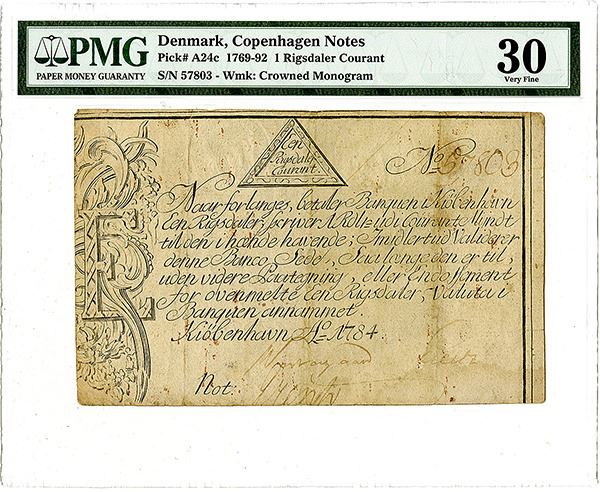 PMG
PAPER MONEY GUARANTY
Denmark, Copenhagen Notes
Pick# A24c 1769-92 1 Rigsdaler Courant
S/N 57803 - Wmk: Crowned Monogram
30
Very Fine
Een
Rigsdaler
Courant.
No 57803
Naar forlanges, betaler Banquen i Kiöbenhavn
Een Rigsdaler, skriver 1. Rdlr. udi Courant Myndt
til den i hænde havende; Imidlertid Validerer
denne Banco-Sedel, Saa længe den er til,
uden videre Paategning, eller Endossement
for ovenmelte een Rigsdaler; Valuta i
Banquen annammet.
Kiöbenhavn Ao 1784.
Not: